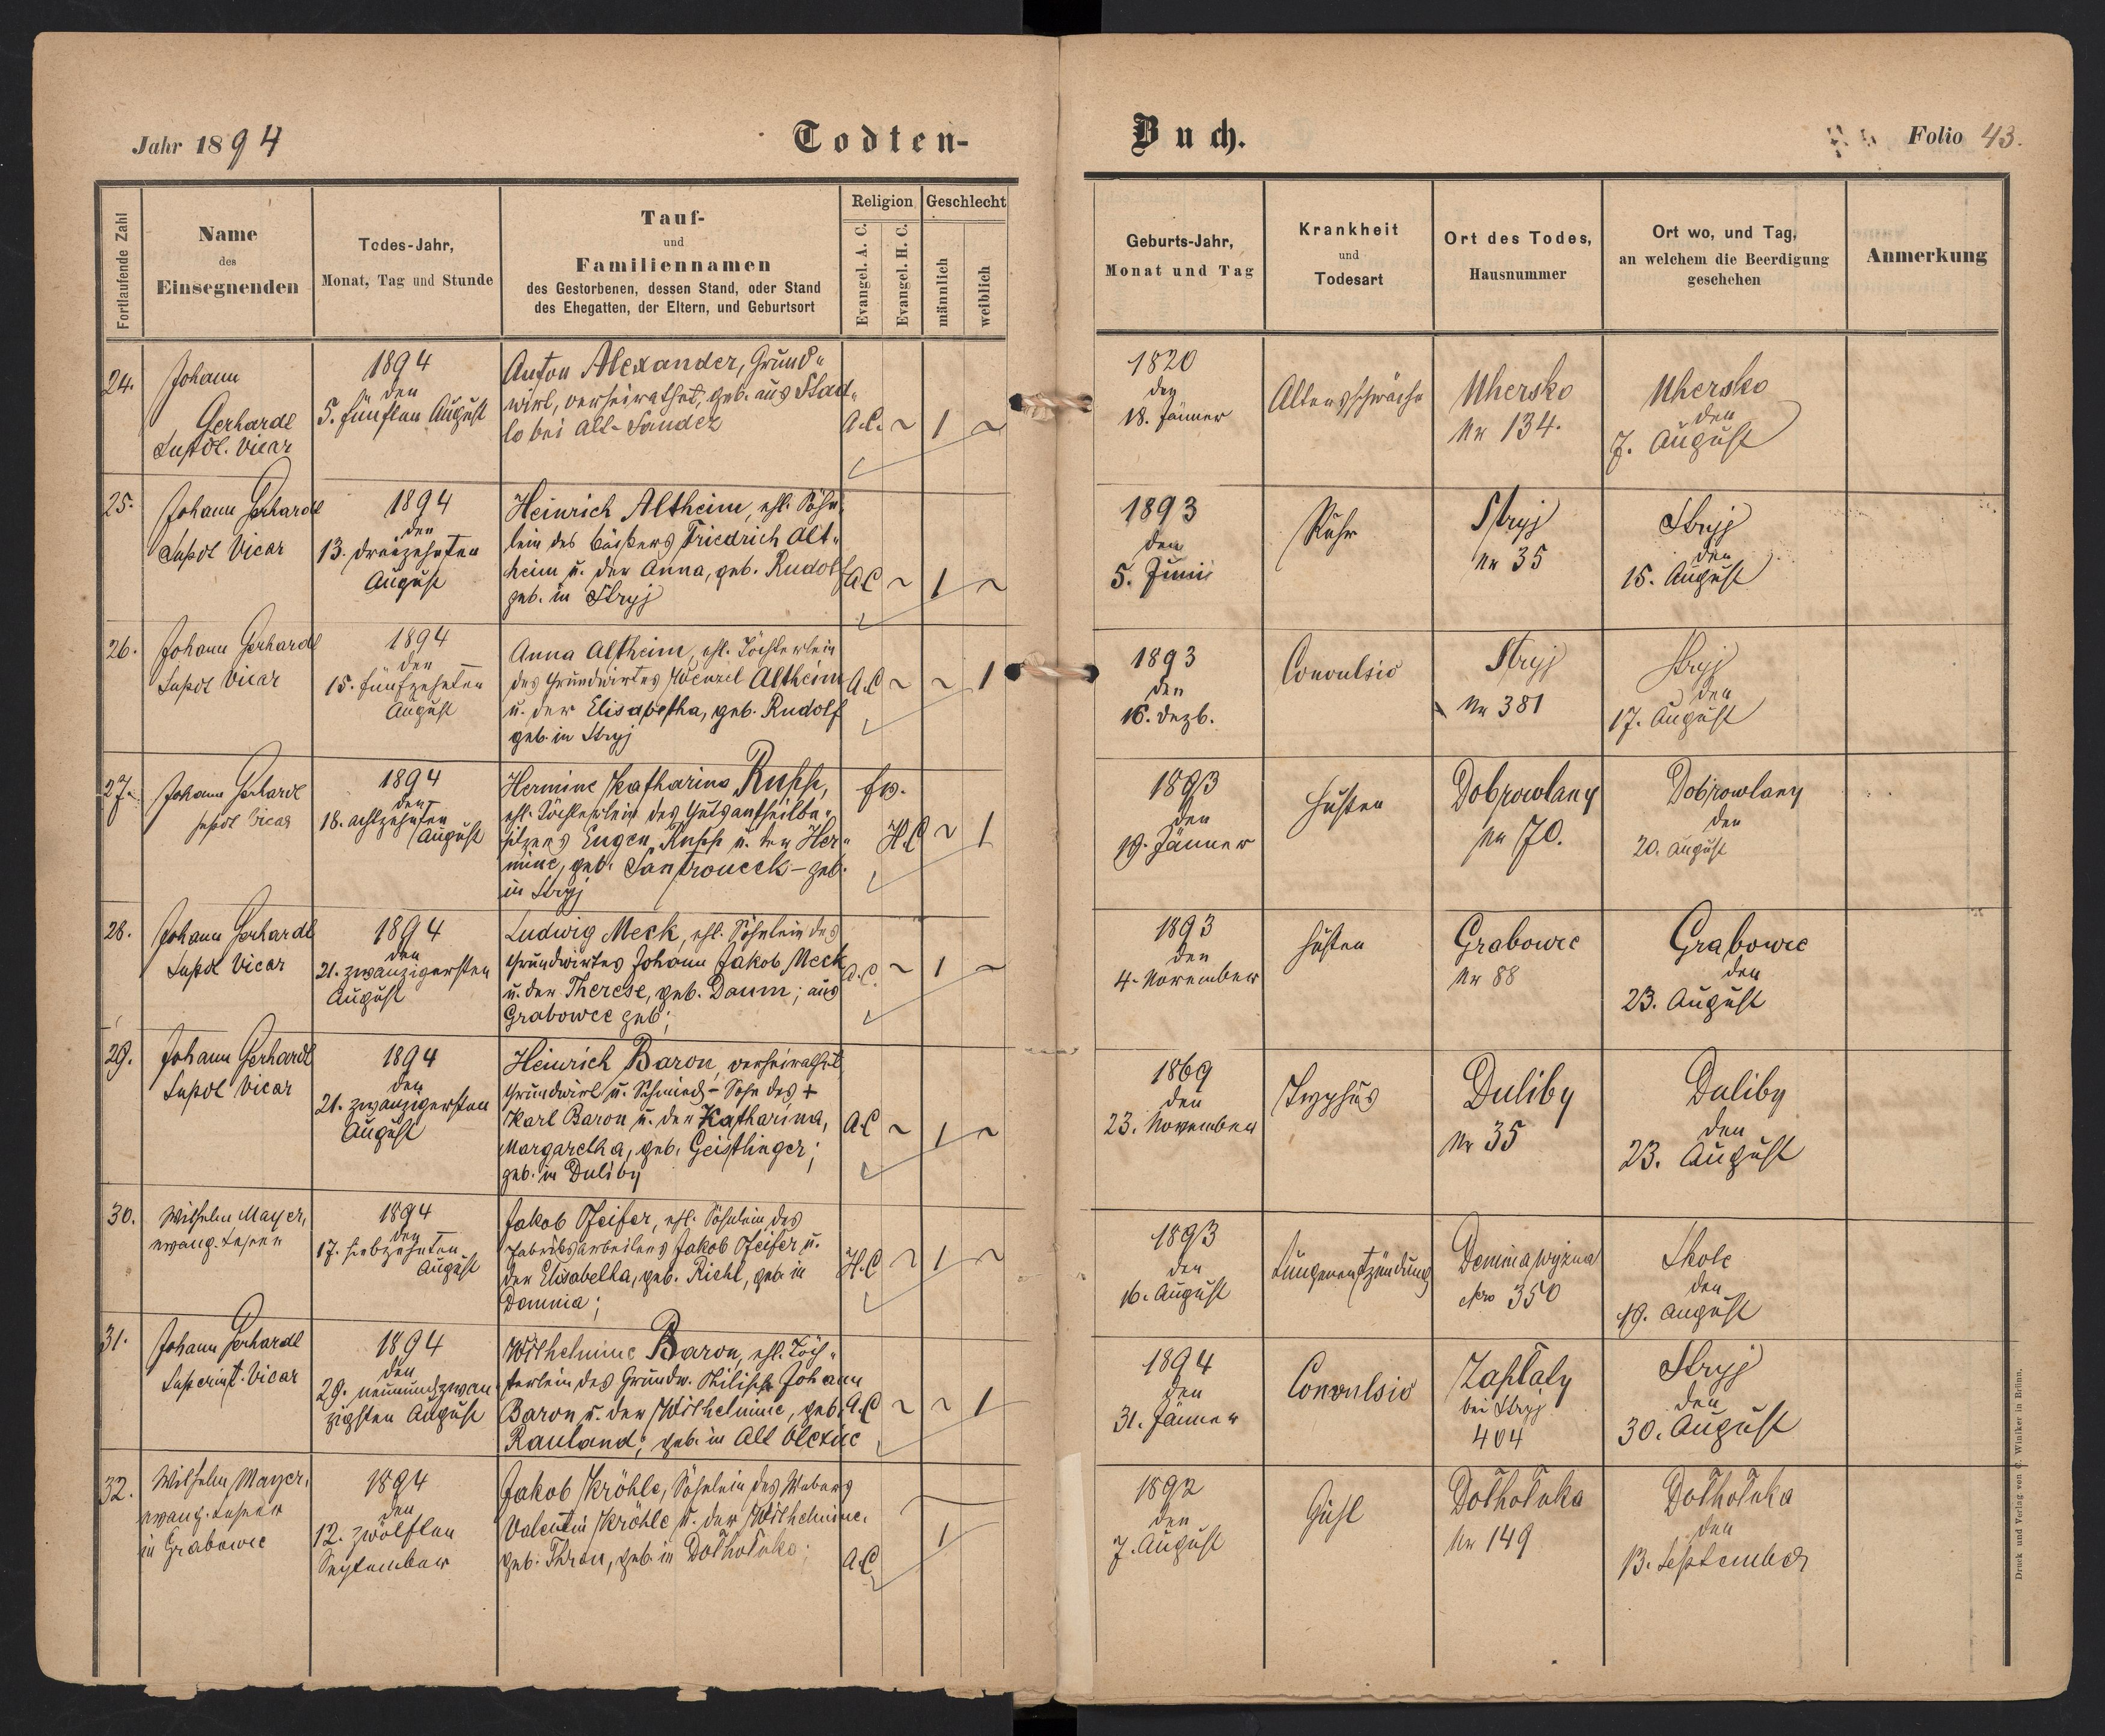 Jahr 1894
Todten-
Buch.
Folio 43.
Fortlaufende Zahl
Name
des
Einsegnenden
Todes-Jahr,
Monat, Tag und Stunde
Tauf-
und
Familiennamen
des Gestorbenen, dessen Stand, oder Stand
des Ehegatten, der Eltern, und Geburtsort
Religion
Evangel. A. C.
Evangel. H. C.
Geschlecht
männlich
weiblich
Geburts-Jahr,
Monat und Tag
Krankheit
und
Todesart
Ort des Todes,
Hausnummer
Ort wo, und Tag,
an welchem die Beerdigung
geschehen
Anmerkung
24.
Johann
Gerhardt
Supdt. Vicar
1894
den
5. fünften August
Anton Alexander, Grund„
wirt, verheirathet, geb. aus Stad„
lo bei Alt-Sandez
A.C. ~ 1 ~
1820
den
18. Jänner
Altersschwäche
Uhersko
Nr 134.
Uhersko
den
7. August
25.
Johann Gerhardt
Supdt Vicar
1894
den
13. dreizehnten
August
Heinrich Altheim, ehl. Söhn„
lein des Bäckers Friedrich Alt„
heim u. der Anna, geb. Rudolf
geb. in Stryj
A.C ~ 1 ~
1893
den
5. Juni
Ruhr
Stryj
Nr 35
Stryj
den
15. August
26.
Johann Gerhardt
Supdt Vicar
1894
den
15. fünfzehnten
August
Anna Altheim, ehl. Töchterlein
des Grundwirtes Wenzel Altheim
u. der Elisabetha, geb. Rudolf
geb. in Stryj
A.C ~ ~ 1
1893
den
16. Dezb.
Convulsio
Stryj
Nr 381
Stryj
den
17. August
27.
Johann Gerhardt
Supdt Vicar
1894
den
18. achtzehnten
August
Hermine Katharina Rupp,
ehl. Töchterlein des Gutsantheilbe„
sitzers Eugen Rupp u. der Her„
mine, geb. – geb.
in Stryj
H.C ~ 1
1893
den
19. Jänner
Husten
Dobrowlany
Nr 70.
Dobrowlany
den
20. August
28.
Johann Gerhardt
Supdt Vicar
1894
den
21. zwanzigersten
August
Ludwig Meck, ehl. Söhnlein des
Grundwirtes Johann Jakob Meck
u. der Therese, geb. Daum; aus
Grabowce geb;
A.C. ~ 1 ~
1893
den
4. November
Husten
Grabowce
Nr 88
Grabowce
den
23. August
29.
Johann Gerhardt
Supdt Vicar
1894
den
21. zwanzigersten
August
Heinrich Baron, verheirathet
Grundwirt u. Schmied – Sohn des +
Karl Baron u. der Katharina,
Margaretha, geb. Geistlinger;
geb. in Duliby
A.C ~ 1 ~
1869
den
23. November
Typhus
Duliby
Nr 35
Duliby
den
23. August
30.
Wilhelm Mayer,
evang. Lehrer
1894
den
17. siebzehnten
August
Jakob Pfeifer, ehl. Söhnlein des
Fabriksarbeiters Jakob Pfeifer u.
der Elisabetha, geb. Riehl, geb. in
Demnia;
H.C ~ 1 ~
1893
den
16. August
Lungenentzündung
Demnia wyżna
Nro 350
Skole
den
19. August
31.
Johann Gerhardt
Superint. Vicar
1894
den
29. neunundzwan
zigsten August
Wilhelmine Baron, ehl. Töch„
terlein des Grundw. Philipp Johann
Baron u. der Wilhelmine, geb.
Rauland; geb. in Alt Olexnc
A.C ~ ~ 1
1894
den
31. Jänner
Convulsio
Zapłaty
bei Stryj
404
Stryj
den
30. August
32.
Wilhelm Mayer,
evang. Lehrer
in Grabowce
1894
den
12. zwölften
September
Jakob Kröhle, Söhnlein des Webers
Valentin Kröhle u. der Wilhelmine,
geb. Thron, geb. in Dołhołuka;
A.C
1
1892
den
7. August
Dołhołuka
Nr 149
Dołhołuka
den
13. September
Druck und Verlag von C. Winiker in Brünn.